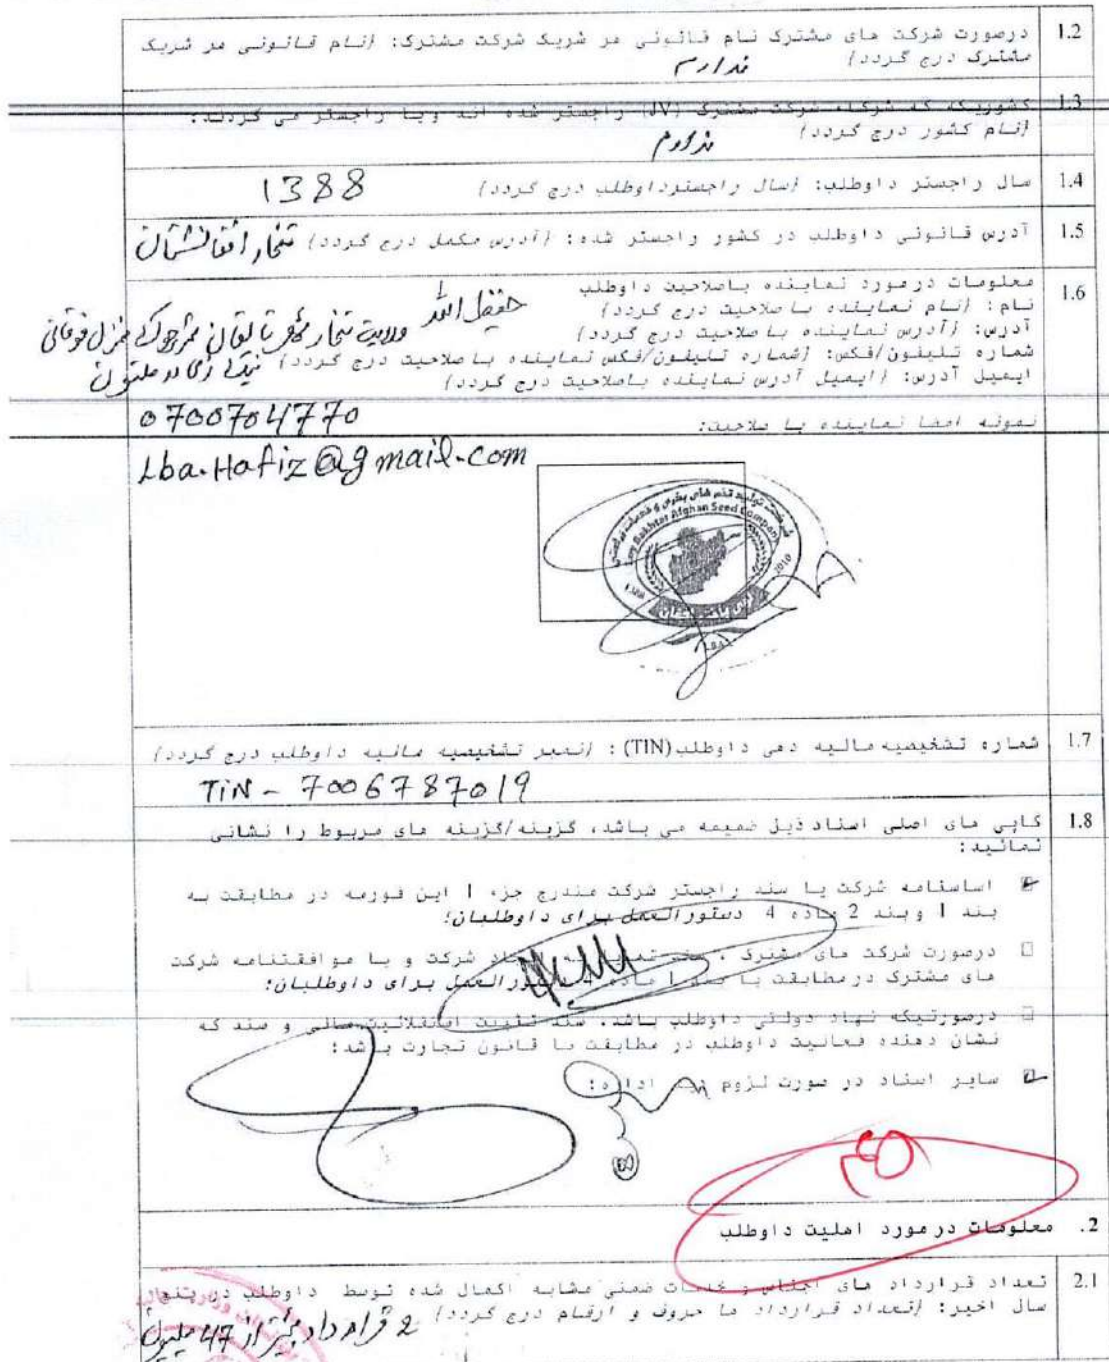 1.2 درصورت شرکت های مشترک نام قانونی هر شریک شرکت مشترک: {نام قانونی هر شریک
مشترک درج گردد} ندارم
1.3 کشوریکه که شرکاء شرکت مشترک (JV) راجستر شده اند ویا راجستر می گردند:
{نام کشور درج گردد} ندارم
1.4 سال راجستر داوطلب: {سال راجسترداوطلب درج گردد} 1388
1.5 آدرس قانونی داوطلب در کشور راجستر شده: {آدرس مکمل درج گردد} تخار افغانستان
1.6 معلومات درمورد نماینده باصلاحیت داوطلب
نام: {نام نماینده با صلاحیت درج گردد} حفیظ الله
آدرس: {آدرس نماینده با صلاحیت درج گردد} ولایت تخار شهر تالقان منزل فوقانی
شماره تلیفون/فکس: {شماره تلیفون/فکس نماینده با صلاحیت درج گردد}
ایمیل آدرس: {ایمیل آدرس نماینده باصلاحیت درج گردد}
0700704770
نمونه امضا نماینده با صلاحیت:
Lba.Hafiz@gmail.com
شرکت تولید تخم های بذری و خدمات زراعتی
Bakhtar Afghan Seed Company
1388
2010
LBA
1.7 شماره تشخیصیه مالیه دهی داوطلب(TIN): {نمبر تشخیصیه مالیه داوطلب درج گردد}
TiN - 7006787019
1.8 کاپی های اصلی اسناد ذیل ضمیمه می باشد، گزینه/گزینه های مربوط را نشانی
نمائید:
اساسنامه شرکت یا سند راجستر شرکت مندرج جزء 1 این فورمه در مطابقت به
بند 1 وبند 2 ماده 4 دستورالعمل برای داوطلبان؛
درصورت شرکت های مشترک، شرکت و یا موافقتنامه شرکت
های مشترک درمطابقت با بند 1 ماده 4 دستورالعمل برای داوطلبان؛
درصورتیکه نهاد دولتی داوطلب باشد، سند تثبیت استقلالیت مالی و سند که
نشان دهنده فعالیت داوطلب در مطابقت با قانون تجارت باشد؛
سایر اسناد در صورت لزوم دید اداره؛
2. معلومات درمورد اهلیت داوطلب
2.1 تعداد قرارداد های اجناس و خدمات ضمنی مشابه اکمال شده توسط داوطلب در پنج
سال اخیر: {تعداد قرارداد ها حروف و ارقام درج گردد} 2 قرارداد بیشتر از 47 ملیون